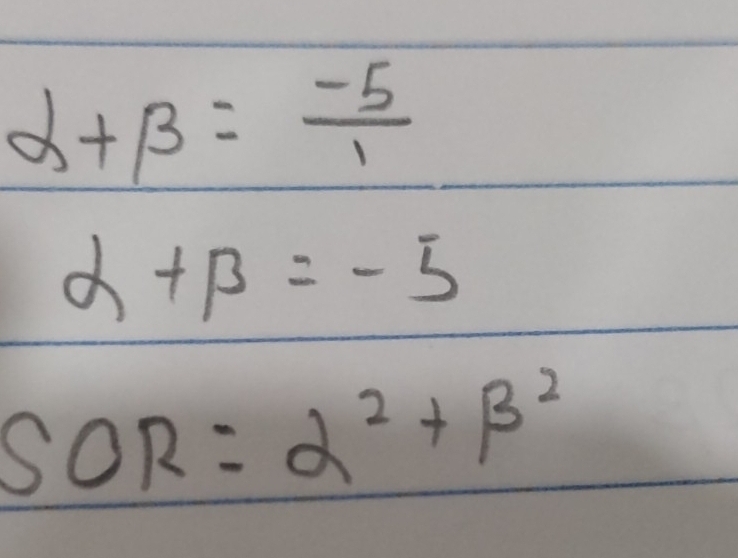 α+β = -5/1
α+β = -5
SOR = α²+β²